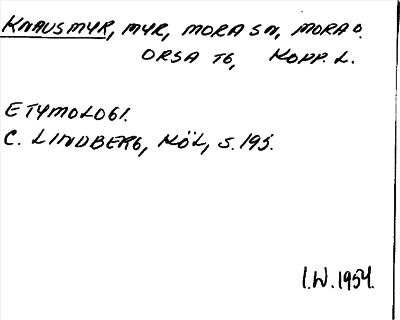 KNAUSMYR, MYR, MORA SN, MORA O.
ORSA TG, KOPP. L.
ETYMOLOGI.
C. LINDBERG, KÖL, S. 195.
I.W. 1954.